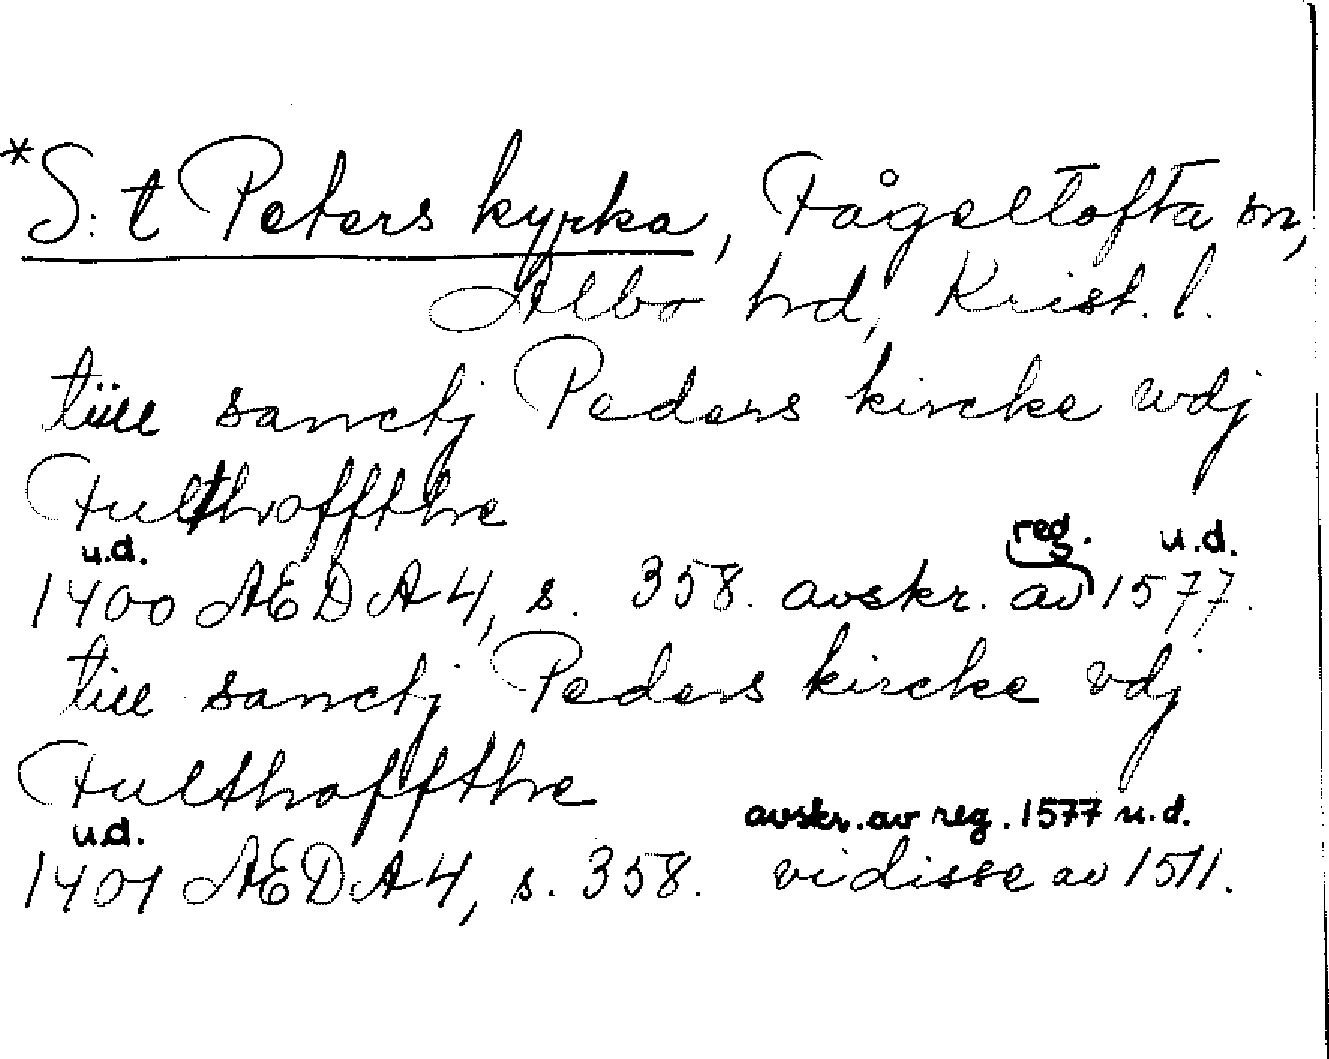 *S:t Peters kyrka, Fågeltofta sn,
Albo hrd, Krist. l.
tüll sanctj Peders kircke wdj
Fulthoffthe
u.d. reg. u.d.
1400 AEDA4, s. 358. avskr. av 1577.
till sanctj Peders kircke vdj
Fulthoffthe
u.d. avskr. av reg. 1577 u.d.
1401 AEDA4, s. 358. vidisse av 1511.